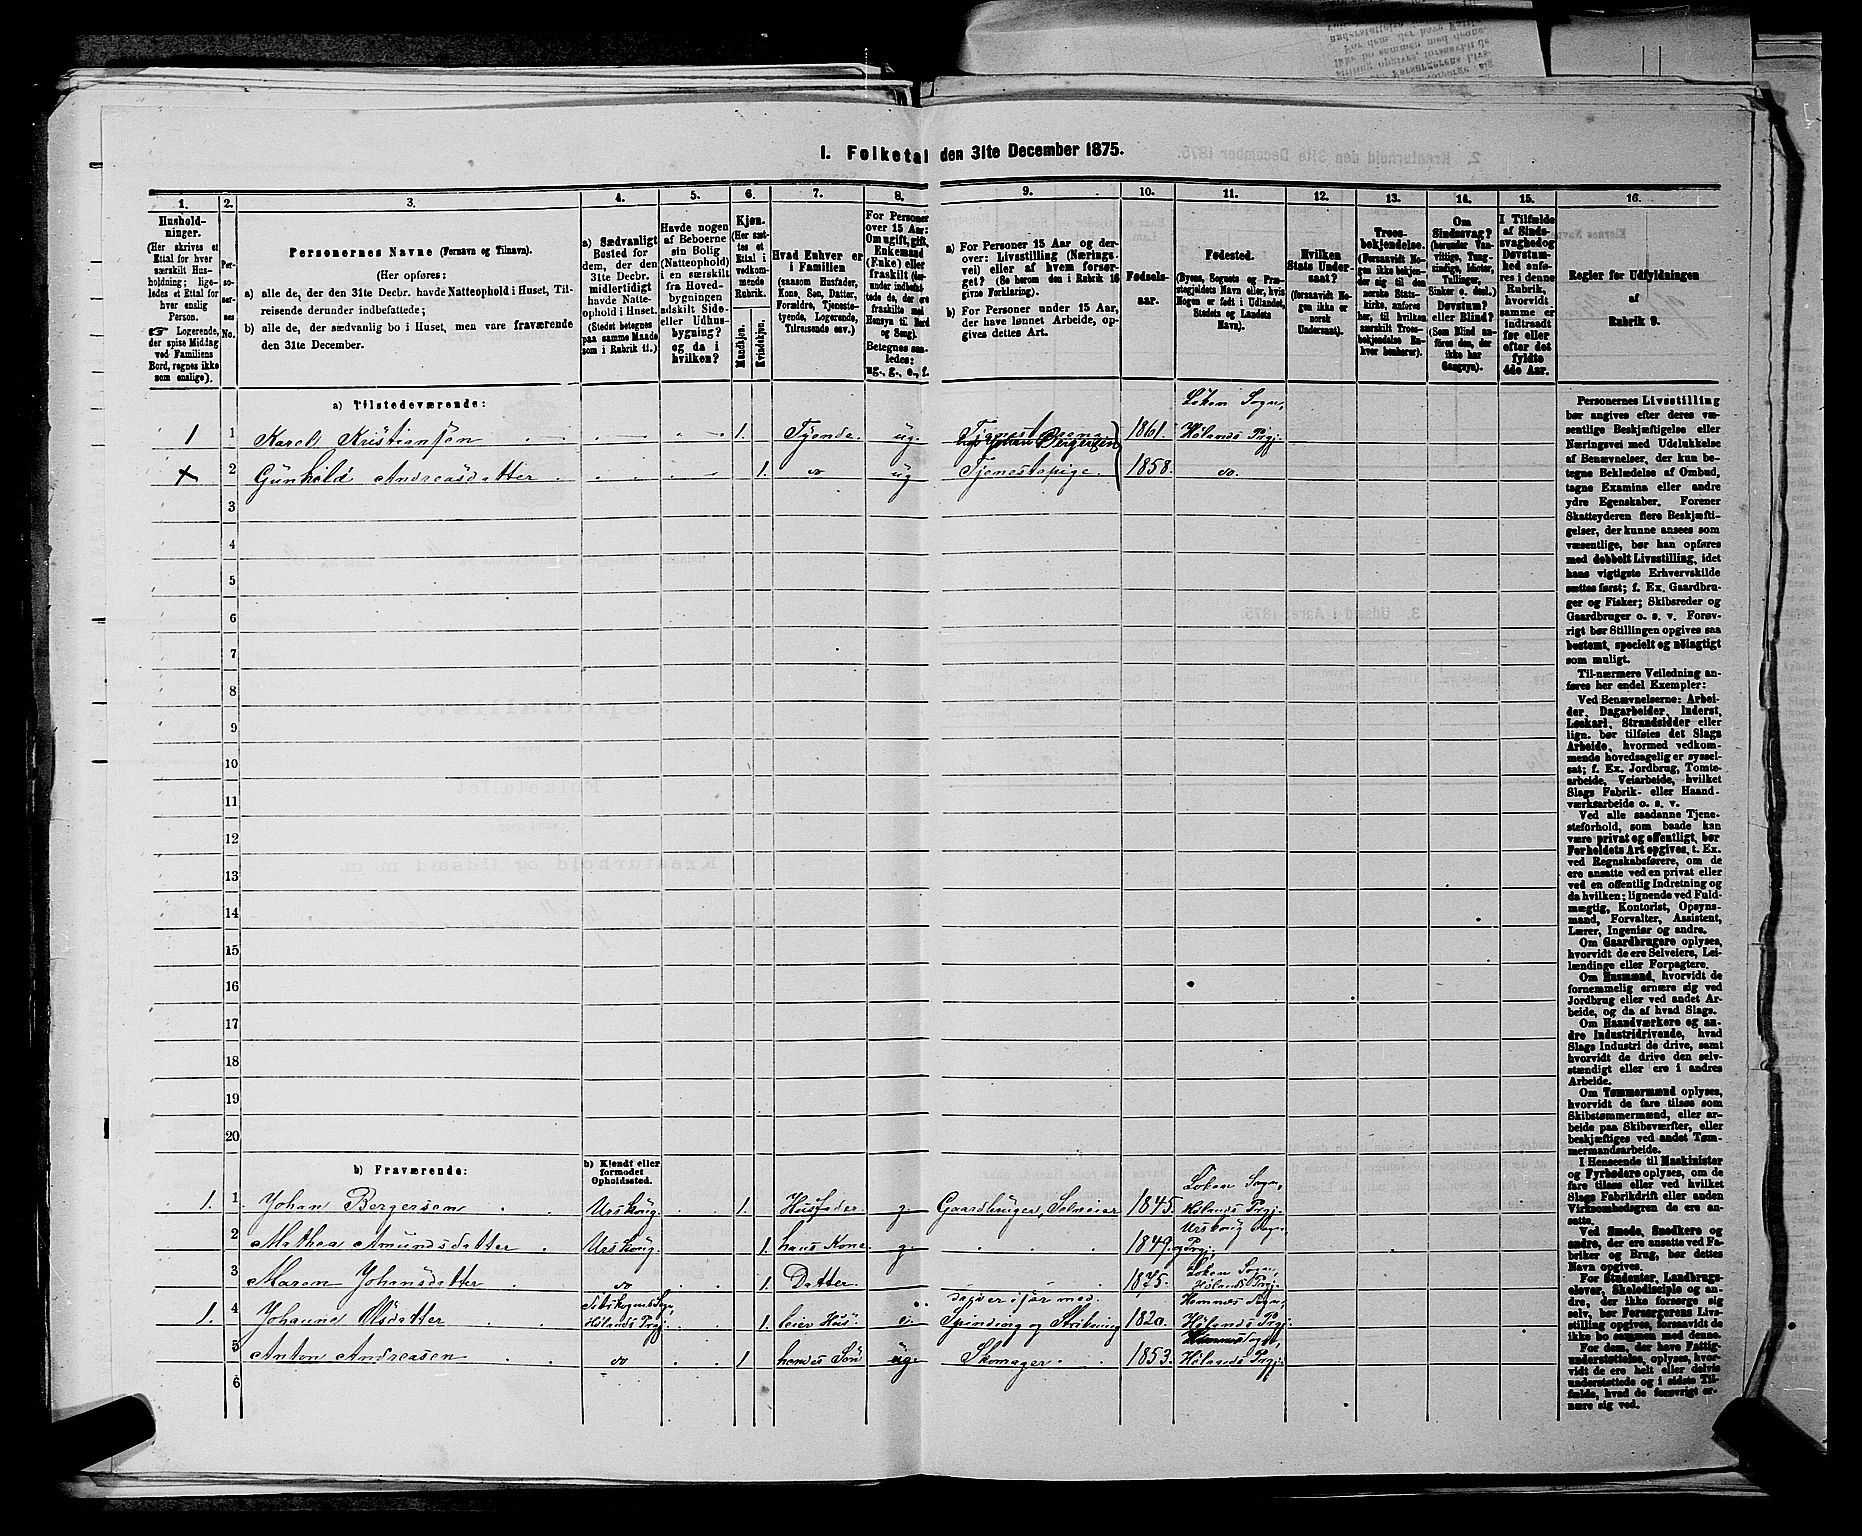 I. Folketal den 31te December 1875.
1. 2. 3. 4. 5. 6. 7. 8. 9. 10. 11. 12. 13. 14. 15. 16.
Hushold-
ninger.
(Her skrives et
Ettal for hver
særskilt Hus-
holdning; lige-
ledes et Ettal for
hver enslig
Person.
Logerende,
der spise Middag
ved Familiens
Bord, regnes ikke
som enslige).
Per-
so-
ner-
nes
No.
Personernes Navne (Fornavn og Tilnavn).
(Her opføres:
a) alle de, der den 31te Decbr. havde Natteophold i Huset, Til-
reisende derunder indbefattede;
b) alle de, der sædvanlig bo i Huset, men vare fraværende
den 31te December.
a) Sædvanligt
Bosted for
dem, der den
31te Decbr.
midlertidigt
havde Natte-
ophold i Huset.
(Stedet betegnes
paa samme Maade
som i Rubrik 11.)
Havde nogen
af Beboerne
sin Bolig
(Natteophold)
i en særskilt
fra Hoved-
bygningen
adskilt Side-
eller Udhus-
bygning?
og da i
hvilken?
Kjøn.
(Her sæt-
tes et
Ettal i
vedkom-
mende
Rubrik.
Mandkjøn.
Kvindekjøn.
Hvad Enhver er
i Familien
(saasom Husfader,
Kone, Søn, Datter,
Forældre, Tjeneste-
tyende, Logerende,
Tilreisende osv.)
For Personer
over 15 Aar:
Om ugift, gift,
Enkemand
(Enke) eller
fraskilt (der-
under indbefat-
tede de, der ere
fraskilte med
Hensyn til Bord
og Seng).
Betegnes saa-
ledes:
ug., g., e., f.
a) For Personer 15 Aar og der-
over: Livsstilling (Nærings-
vei) eller af hvem forsør-
get? (Se herom den i Rubrik 16
givne Forklaring).
b) For Personer under 15 Aar,
der have lønnet Arbeide, op-
gives dettes Art.
Fødsels-
aar.
Fødested.
(Byens, Sognets og Præ-
stegjeldets Navn eller, hvis
Nogen er født i Udlandet,
Stedets og Landets
Navn).
Hvilken
Stats Under-
saat?
(forsaavidt No-
gen ikke er
norsk
Undersaat).
Troes-
bekjendelse.
(Forsaavidt No-
gen ikke bekjen-
der sig til den
norske Stats-
kirke, anføres
her, til hvilken
særskilt Troes-
bekjendelse En-
hver henhører).
Om
Sindssvag?
(herunder Van-
vittige, Tung-
sindige, Idioter,
Tullinger,
Sinker o. desl.)
Døvstum?
eller Blind?
(Som Blind an-
føres den, der
ikke har
Gangsyn).
I Tilfælde
af Sinds-
svaghed og
Døvstum-
hed anfø-
res i denne
Rubrik,
hvorvidt
samme er
indtraadt
før eller
efter det
fyldte
4de Aar.
Regler for Udfyldningen
af
Rubrik 9.
a) Tilstedeværende:
Løken Sogn,
1 1 Karel Kristiansen 1. Tyende ug. Tjenestedreng 1861. Hølands Prgj.
hos Johan Bergersen
2 Gunhild Andreasdatter 1. do ug Tjenestepige. 1858. do.
3
4
5
6
7
8
9
10
11
12
13
14
15
16
17
18
19
20
b) Fraværende:
b) Kjendt eller
formodet
Opholdssted.
Løken Sogn,
1. 1 Johan Bergersen Urskoug. 1. Husfader g. Gaardbruger, Selveier 1845. Hølands Prgj.
Urskoug Sogn
2 Mathea Amundsdatter Urskoug. 1. hans Kone. g. 1849. og Prgj.
Løken Sogn,
3 Maren Johansdatter do 1. Datter 1875. Hølands Prgj.
Hemnes Sogn,
1. 4 Johanne Olsdatter Hølands Prgj. 1. leier Hus e. Spinding og Strikning 1820. Hølands Prgj.
5 Anton Andreasen do 1 hendes Søn ug. Skomager. 1853. Hølands Prgj.
6
Personernes Livsstilling
bør angives efter deres væ-
sentlige Beskjæftigelse eller
Næringsvei med Udelukkelse
af Benævnelser, der kun be-
tegne Beklædelse af Ombud,
tagne Examina eller andre
ydre Egenskaber. Forener
Skatteyderen flere Beskjæfti-
gelser, der kunne ansees som
væsentlige, bør han opføres
med dobbelt Livsstilling, idet
hans vigtigste Erhvervskilde
sættes først; f. Ex. Gaardbru-
ger og Fisker; Skibsreder og
Gaardbruger o. s. v. Forøv-
rigt bør Stillingen opgives saa
bestemt, specielt og nøiagtigt
som muligt.
Til nærmere Veiledning an-
føres her endel Exempler:
Ved Benævnelserne: Arbei-
der, Dagarbeider, Inderst,
Løskarl, Strandsidder eller
lign. bør tilføies det Slags
Arbeide, hvormed vedkom-
mende hovedsagelig er syssel-
sat; f. Ex. Jordbrug, Tomte-
arbeide, Veiarbeide, hvilket
Slags Fabrik- eller Haand-
værksarbeide o. s. v.
Ved alle saadanne Tjene-
steforhold, som baade kan
være privat og offentligt, bør
Forholdets Art opgives, t. Ex.
ved Regnskabsførere, om de
ere ansatte ved en privat eller
ved en offentlig Indretning og
da hvilken; lignende ved Fuld-
mægtig, Kontorist, Opsyns-
mand, Forvalter, Assistent,
Lærer, Ingeniør og andre.
Om Gaardbrugere oplyses,
hvorvidt de ere Selveiere, Lei-
lændinge eller Forpagtere.
Om Husmænd, hvorvidt de
fornemmelig ernære sig ved
Jordbrug eller ved andet Ar-
beide, og da af hvad Slags.
Om Haandværkere og an-
dre Industridrivende, hvad
Slags Industri de drive, samt
hvorvidt de drive den selv-
stændigt eller ere i andres
Arbeide.
Om Tømmermænd oplyses,
hvorvidt de fare tilsøs som
Skibstømmermænd, eller ar-
beide paa Skibsværfter, eller
beskjæftiges ved andet Tøm-
mermandsarbeide.
I Henseende til Maskinister
og Fyrbødere oplyses, om de
fare tilsøs eller ved hvilket
Slags Fabrikdrift eller anden
Virksomhedsgren de ere an-
satte.
Ved Smede, Snedkere og
andre, der ere ansatte ved Fa-
briker og Brug, bør dettes
Navn opgives.
For Studenter, Landbrugs-
elever, Skoledisciple og an-
dre, der ikke forsørge sig
selv, bør Forsørgerens Livs-
stilling opgives, forsaavidt de
ikke bo sammen med denne.
For dem, der have Fattig-
understøttelse, oplyses, hvor-
vidt de ere helt eller delvis
understøttede og i sidste Til-
fælde, hvad de forøvrigt er-
nære sig ved.